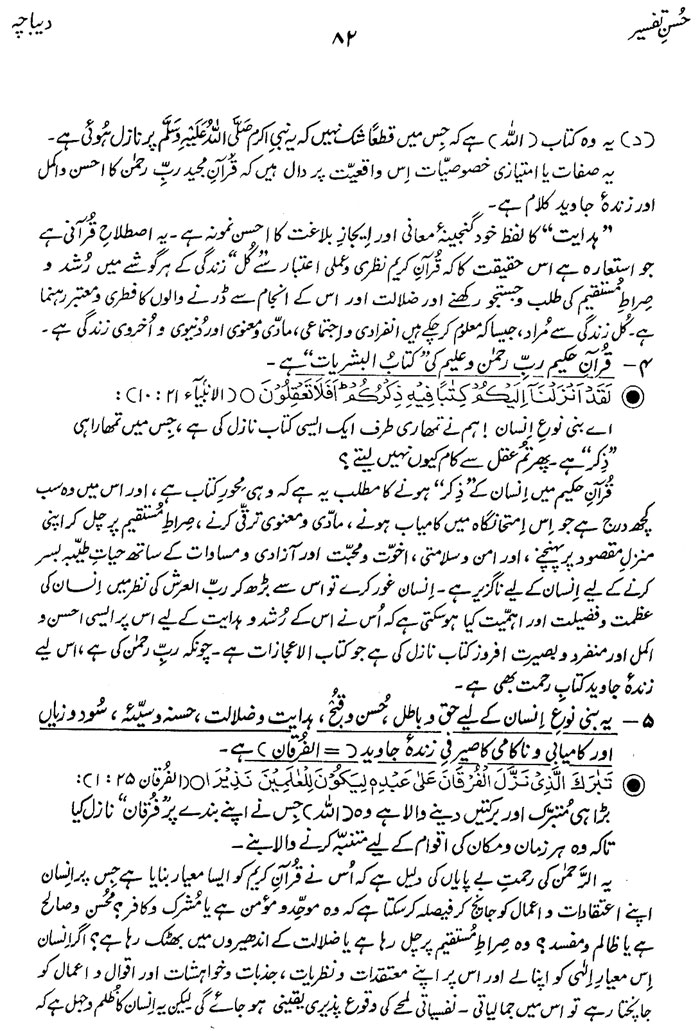 حُسنِ تفسیر
۸۲
دیباچہ
(د) یہ وہ کتاب (اللہ) ہے کہ جس میں قطعاً شک نہیں کہ یہ نبیِ اکرم صَلَّی اللہُ عَلَیْہِ وَسَلَّم پر نازل ہُوئی ہے۔
یہ صفات یا امتیازی خصوصیّات اِس واقعیّت پر دال ہیں کہ قُرآنِ مجید ربِّ رحمٰن کا احسن و اکمل
اور زندۂ جاوید کلام ہے۔
”ہدایت“ کا لفظ خود گنجینۂ معانی اور ایجازِ بلاغت کا احسن نمونہ ہے۔ یہ اصطلاحِ قُرآنی ہے
جو استعارہ ہے اس حقیقت کا کہ قُرآنِ کریم نظری و عملی اعتبار سے ”کُل“ زندگی کے ہر گوشے میں رُشد و
صِراطِ مُستقیم کی طلب و جستجو رکھنے اور ضلالت اور اس کے انجام سے ڈرنے والوں کا فطری و معتبر رہنما
ہے۔ کُل زندگی سے مُراد، جیسا کہ معلوم کر چکے ہیں انفرادی و اجتماعی، مادّی و معنوی اور دُنیوی و اُخروی زندگی ہے۔
۴ – قُرآنِ حکیم ربِّ رحمٰن و علیم کی ”کتابُ البشریات“ ہے۔
لَقَدْ اَنْزَلْنَآ اِلَيْكُمْ كِتٰبًا فِيْهِ ذِكْرُكُمْ ؕ اَفَلَا تَعْقِلُوْنَ ○ (الانبیآء ۲۱ : ۱۰):
اے بنی نوعِ انسان! ہم نے تمھاری طرف ایک ایسی کتاب نازل کی ہے، جِس میں تمھارا ہی
”ذِکر“ ہے۔ پھر تُم عقل سے کام کیوں نہیں لیتے؟
قُرآنِ حکیم میں انسان کے ”ذِکر“ ہونے کا مطلب یہ ہے کہ وہی محورِ کتاب ہے، اور اس میں وہ سب
کچھ درج ہے جو اِس اِمتحانگاہ میں کامیاب ہونے، مادّی و معنوی ترقّی کرنے، صِراطِ مُستقیم پر چل کر اپنی
منزلِ مقصود پر پہنچنے، اور امن و سلامتی، اخوّت و محبّت اور آزادی و مساوات کے ساتھ حیاتِ طیّبہ بسر
کرنے کے لیے اِنسان کے لیے ناگزیر ہے۔ اِنسان غور کرے تو اس سے بڑھ کر ربّ العرش کی نظر میں اِنسان کی
عظمت و فضیلت اور اہمیّت کیا ہو سکتی ہے کہ اُس نے اس کے رُشد و ہدایت کے لیے اس پر ایسی احسن و
اکمل اور منفرد و بصیرت افروز کتاب نازل کی ہے جو کتاب الاعجازات ہے۔ چونکہ ربِّ رحمٰن کی ہے، اس لیے
زندۂ جاوید کتابِ رحمت بھی ہے۔
۵ – یہ بنی نوعِ اِنسان کے لیے حق و باطل، حُسن و قُبح، ہدایت و ضلالت، حسنہ و سیّئہ، سُود و زیاں
اور کامیابی و ناکامی کا صیرفیِ زندۂ جاوید (= الفُرقان) ہے۔
تَبٰرَكَ الَّذِیْ نَزَّلَ الْفُرْقَانَ عَلٰی عَبْدِهٖ لِيَكُوْنَ لِلْعٰلَمِيْنَ نَذِيْرَا ○ (الفُرقان ۲۵ : ۱):
بڑا ہی مُتبرّک اور برکتیں دینے والا ہے وہ (اللہ) جِس نے اپنے بندے پر ”فُرقان“ نازل کیا
تاکہ وہ ہر زمان و مکان کی اقوام کے لیے متنبّہ کرنے والا بنے۔
یہ الرّحمٰن کی رحمتِ بے پایاں کی دلیل ہے کہ اُس نے قُرآنِ کریم کو ایسا معیار بنایا ہے جس پر اِنسان
اپنے اعتقادات و اعمال کو جانچ کر فیصلہ کر سکتا ہے کہ وہ موحّد و مؤمن ہے یا مُشرک و کافر؟ مُحسن و صالح
ہے یا ظالم و مفسد؟ وہ صِراطِ مُستقیم پر چل رہا ہے یا ضلالت کے اندھیروں میں بھٹک رہا ہے؟ اگر اِنسان
اِس معیارِ اِلٰہی کو اپنا لے اور اس پر اپنے معتقدات و نظریات، جذبات و خواہشات اور اقوال و اعمال کو
جانچتا رہے تو اس میں جمالیاتی ۔ نفسیاتی لمحے کی وقوع پذیری یقینی ہو جائے گی لیکن یہ اِنسان کا ظُلم و جہل ہے کہ